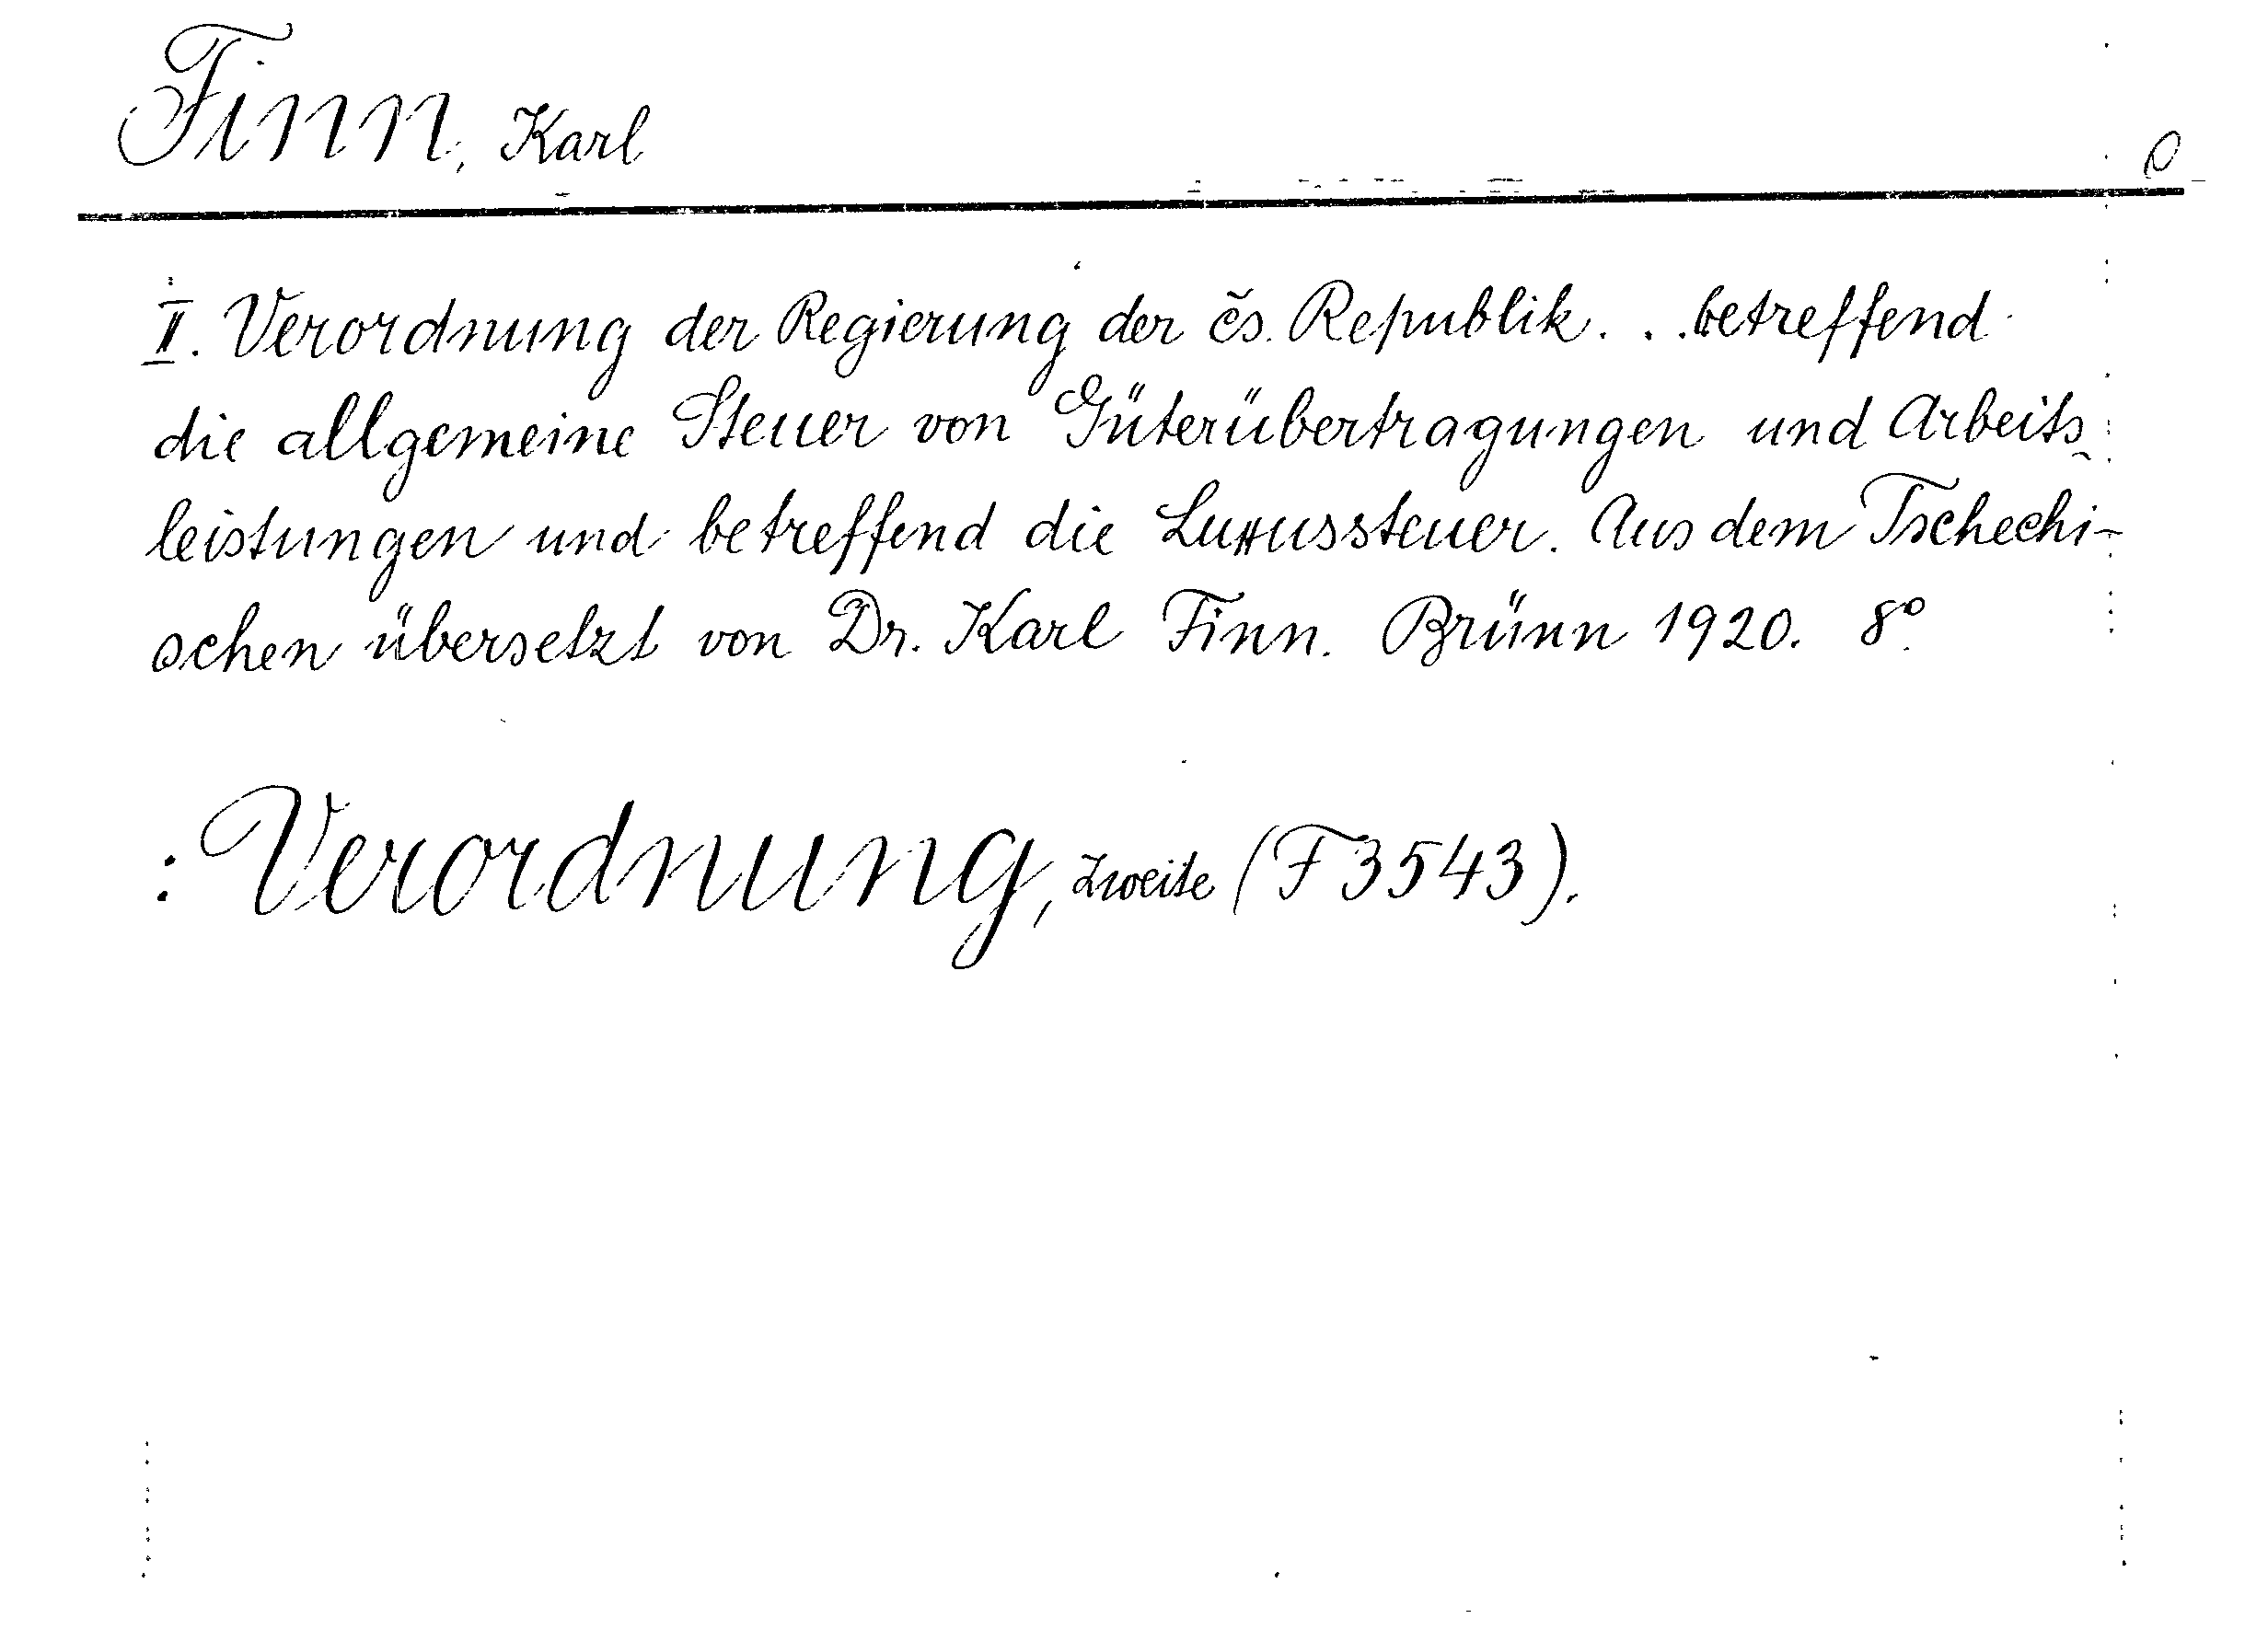 Finn, Karl
O
II. Verordnung der Regierung der čs. Republik. . . betreffend
die allgemeine Steuer von Güterübertragungen und Arbeits-
leistungen und betreffend die Luxussteuer. Aus dem Tschechi-
schen übersetzt von Dr. Karl Finn. Brünn 1920. 8°.
: Verordnung, zweite (F 3543).